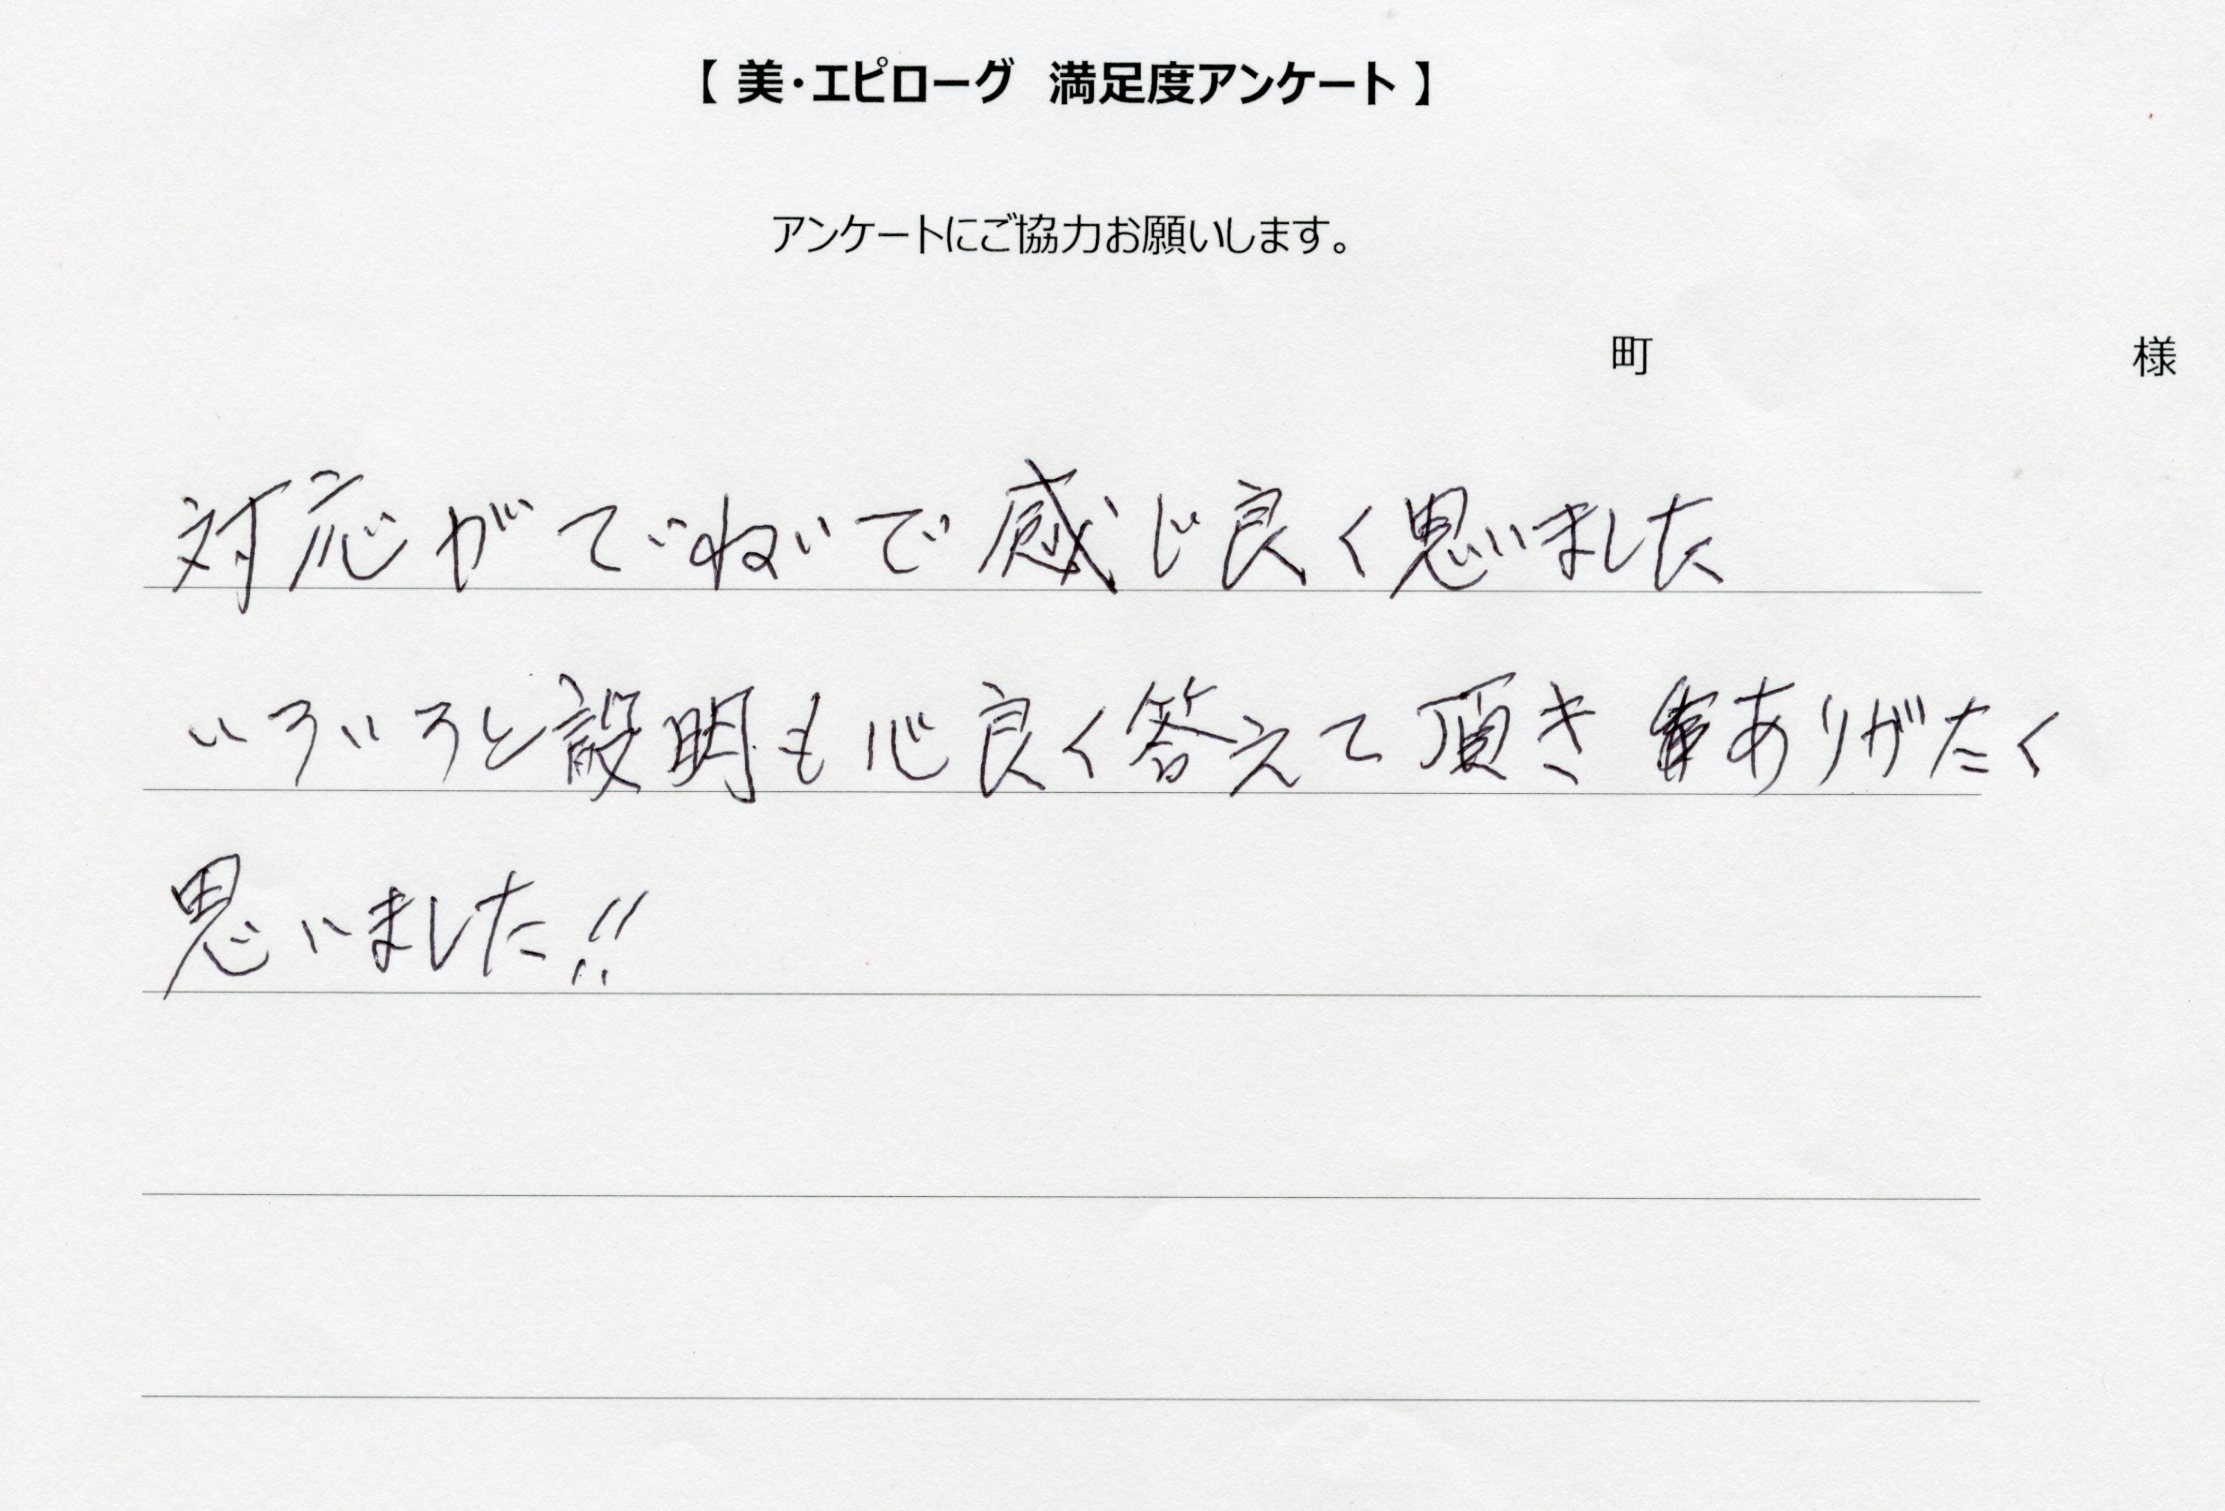 【 美・エピローグ 満足度アンケート 】
アンケートにご協力お願いします。
町 様
対応がでいねいで感じ良く思いました
いろいろと設明も心良く答えて頂きありがたく
思いました!!